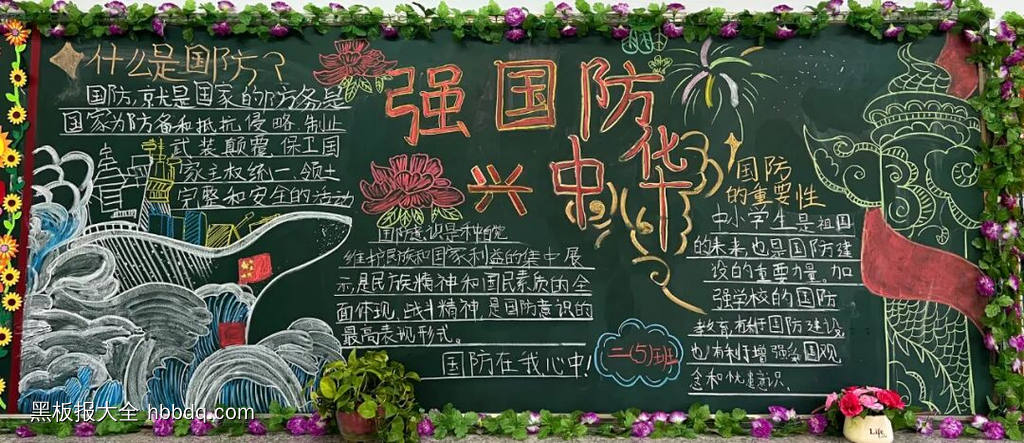 什么是国防？
国防,就是国家的防务,是
国家为防备和抵抗侵略,制止
武装颠覆,保卫国
家主权统一,领土
完整和安全的活动
强国防
兴中华
国防意识是一种自觉
维护民族和国家利益的集中展
示,是民族精神和国民素质的全
面体现,战斗精神,是国防意识的
最高表现形式。
国防在我心中!
一(5)班
国防
的重要性
中小学生是祖国
的未来,也是国防建
设的重要力量。加
强学校的国防
教育,有利于国防建设,
也有利于增强国观
念和忧患意识。
黑板报大全 hbbdq.com
Life